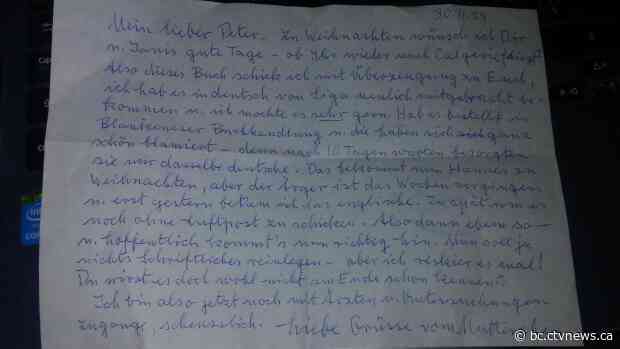 30.11.84
Mein lieber Peter - Zu Weihnachten wünsch ich Dir
u. Janis gute Tage - ob Ihr wieder nach Calgerie fliegt?
Also dieses Buch schick ich mit Überzeugung an Euch,
ich hab es in deutsch von Liga neulich mitgebracht be-
kommen u. ich mochte es sehr gern. Hab es bestellt in
Blankeneser Buchhandlung u. die haben sich ganz
schön blamiert - denn nach 10 Tagen warten besorgten
sie nur dasselbe deutsche. Das bekommt nun Hannes zu
Weihnachten, aber der Ärger ist das Wochen vergingen
u. erst gestern bekam ich das englische. Zu spät um es
noch ohne Luftpost zu schicken. Also dann eben so -
u. hoffentlich kommt's nun richtig hin. Man soll ja
nichts Schriftliches reinlegen - aber ich riskier es mal!
Du wirst es doch wohl nicht am Ende schon kennen?
Ich bin also jetzt noch mit Ärzten u. Untersuchungen
zugange, scheusslich. - Liebe Grüsse vom Mutti
intel
bc.ctvnews.ca